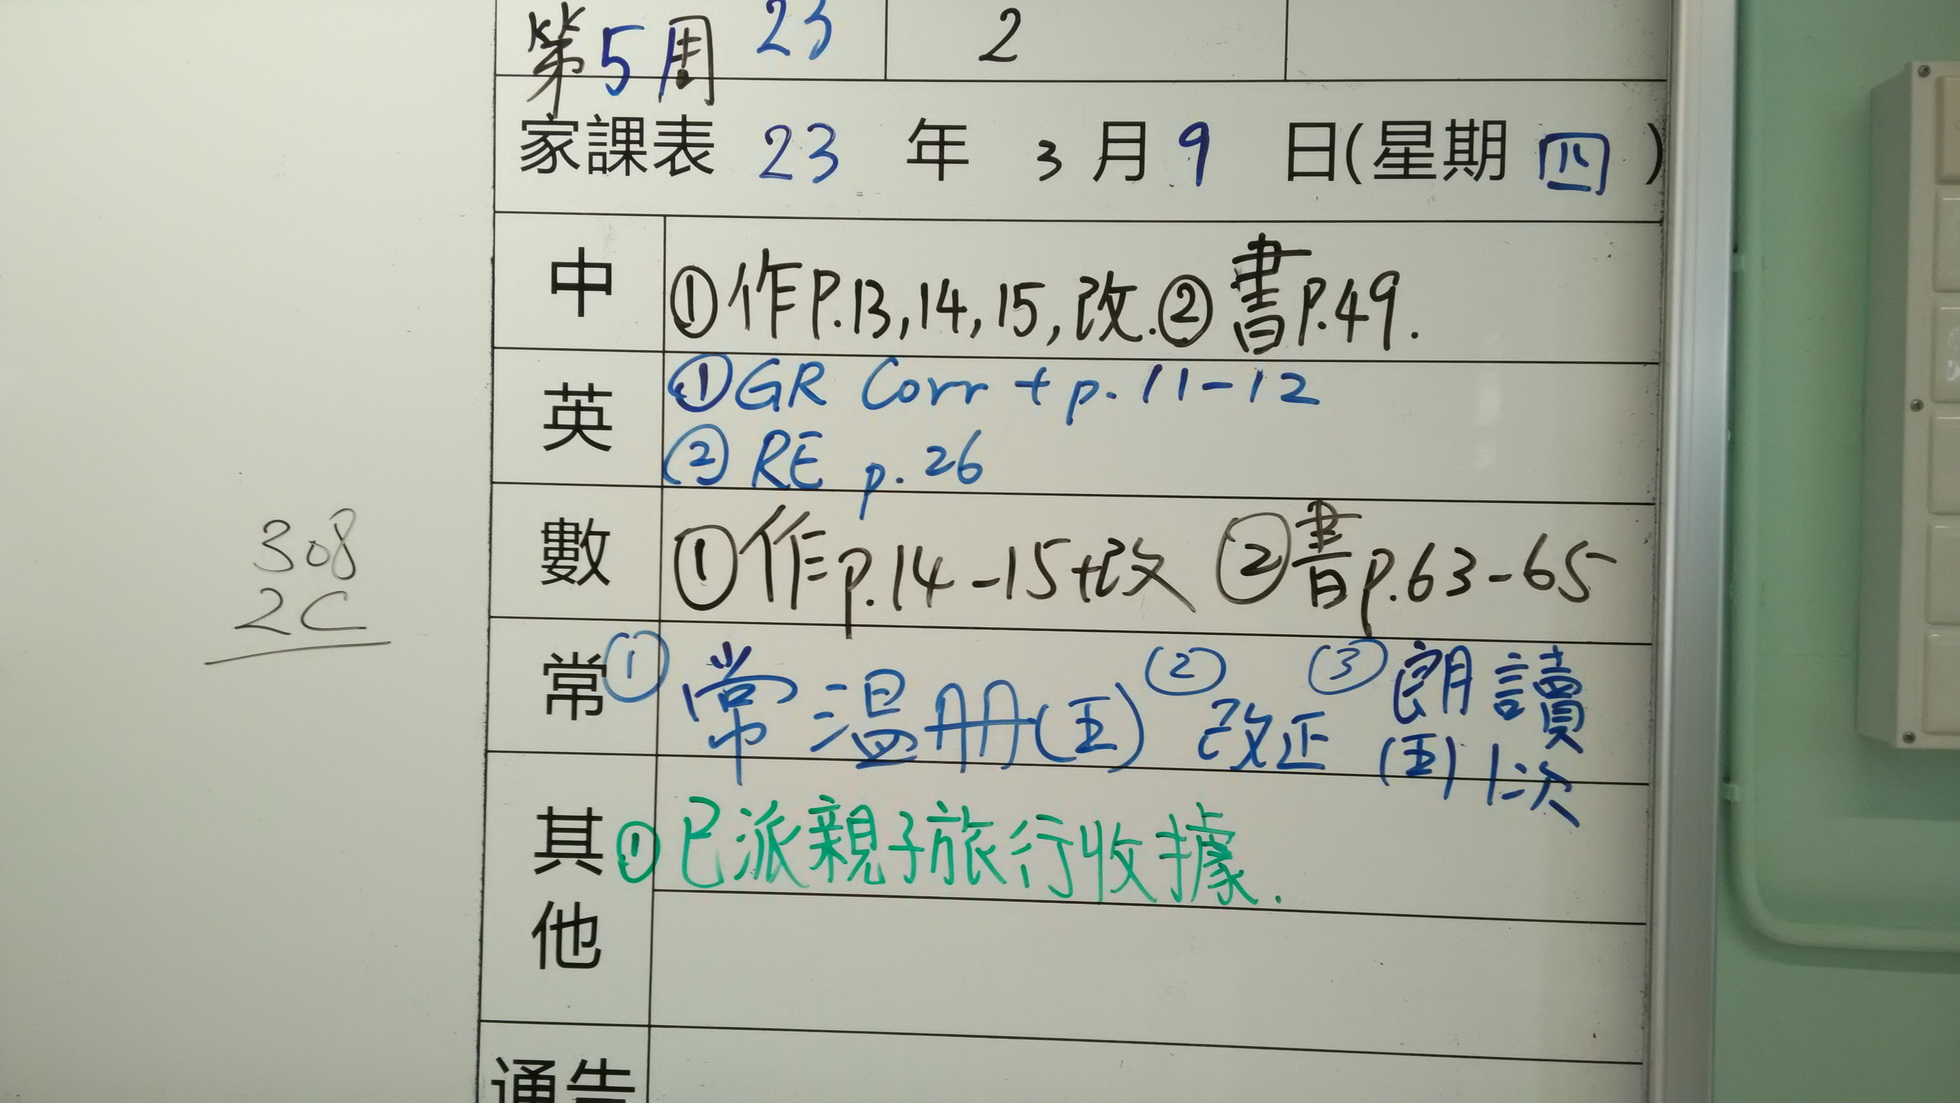 第5周 23 2
家課表 23 年 3 月 9 日(星期 四 )
中 ①作P.13,14,15,改.②書P.49.
英 ①GR Corr + p.11-12
②RE p.26
數 ①作p.14-15+改 ②書p.63-65
308
2C
常 ① 常温册(五) ② 改正 ③ 朗讀
(五)1次
其他 ① 已派親子旅行收據.
通告